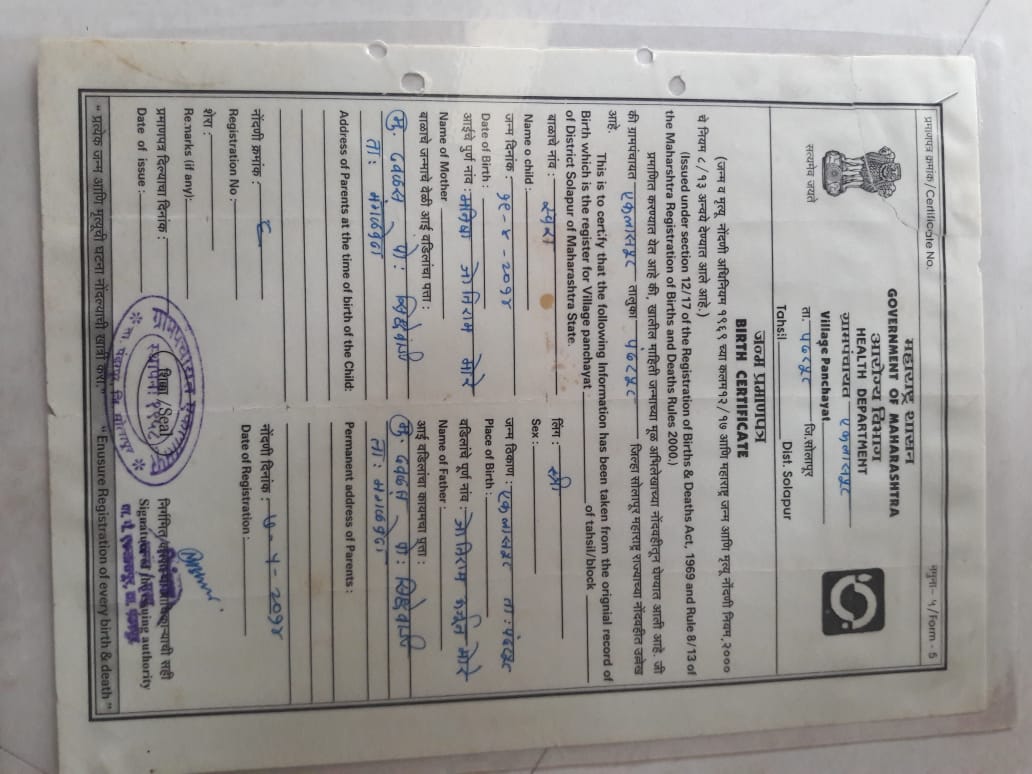 प्रमाणपत्र क्रमांक/Certificate No.
नमुना - ५/Form - 5
सत्यमेव जयते
महाराष्ट्र शासन
GOVERNMENT OF MAHARASHTRA
आरोग्य विभाग
HEALTH DEPARTMENT
ग्रामपंचायत एकलासपूर
Village Panchayat
ता. पंढरपूर जि.सोलापूर
Tahsil Dist. Solapur
जन्म प्रमाणपत्र
BIRTH CERTIFICATE
(जन्म व मृत्यू नोंदणी अधिनियम १९६९ च्या कलम १२/१७ आणि महाराष्ट्र जन्म आणि मृत्यू नोंदणी नियम, २०००
चे नियम ८/१३ अन्वये देण्यात आले आहे.)
(Issued under section 12/17 of the Registration of Births & Deaths Act, 1969 and Rule 8/13 of
the Maharshtra Registration of Births and Deaths Rules 2000.)
प्रमाणित करण्यात येत आहे की, खालील माहिती जन्माच्या मूळ अभिलेखाच्या नोंदवहीतून घेण्यात आली आहे. जी
की ग्रामपंचायत एकलासपूर तालुका पंढरपूर जिल्हा सोलापूर महाराष्ट्र राज्याच्या नोंदवहीत उल्लेख
आहे.
This is to certify that the following Information has been taken from the orignial record of
Birth which is the register for Village panchayat of tahsil/block
of District Solapur of Maharashtra State.
बाळाचे नांव : लिंग : स्त्री
Name o child : Sex :
जन्म दिनांक : १९-४-२०१४ जन्म ठिकाण : एकलासपूर ता: पंढरपूर
Date of Birth : Place of Birth :
आईचे पुर्ण नांव : मनिषा जोतिराम मोरे वडिलांचे पूर्ण नांव : जोतिराम अर्जुन मोरे
Name of Mother Name of Father :
बाळाचे जन्माचे वेळी आई वडिलांचा पत्ता : आई वडिलांचा कायमचा पत्ता :
मु. पो:
ता: मंगळवेढा ता: मंगळवेढा
Address of Parents at the time of birth of the Child: Permanent address of Parents :
नोंदणी क्रमांक : ६ नोंदणी दिनांक : ७-५-२०१४
Registration No : Date of Registration :
शेरा :
Remarks (if any):
प्रमाणपत्र दिल्याचा दिनांक :
Date of issue :
शिक्का /Seal
"प्रत्येक जन्म आणि मृत्यूची घटना नोंदल्याची खात्री करा." "Enusure Registration of every birth & death"